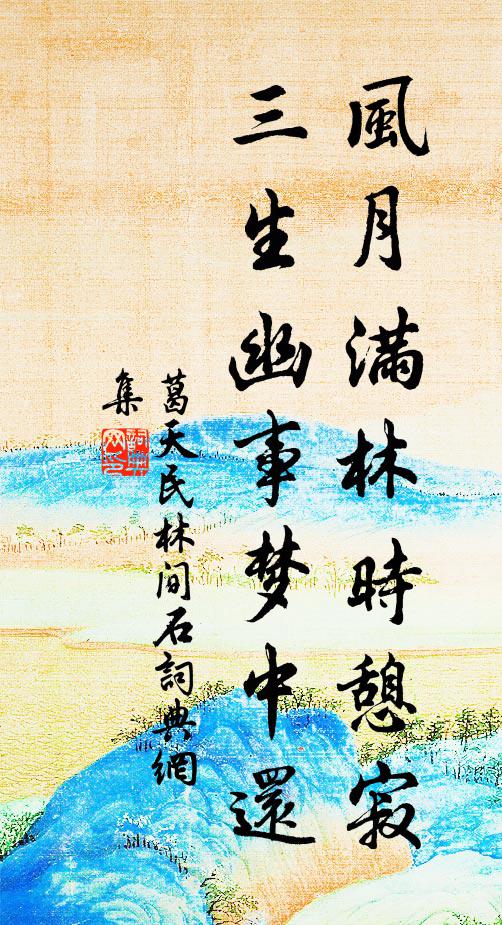 風月滿林時憩寂
三生幽事梦中還
葛天民林间石詞典網
集